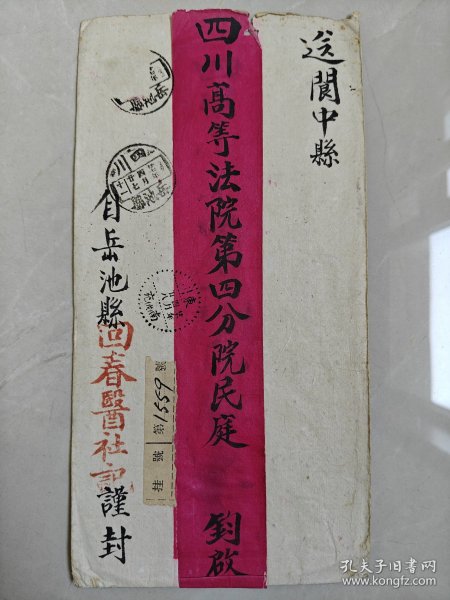 送閬中縣
四川高等法院第四分院民庭 鈞啟
自岳池縣回春醫社記謹封
四川
挂號
第1559號
孔夫子旧书网
www.kongfz.com